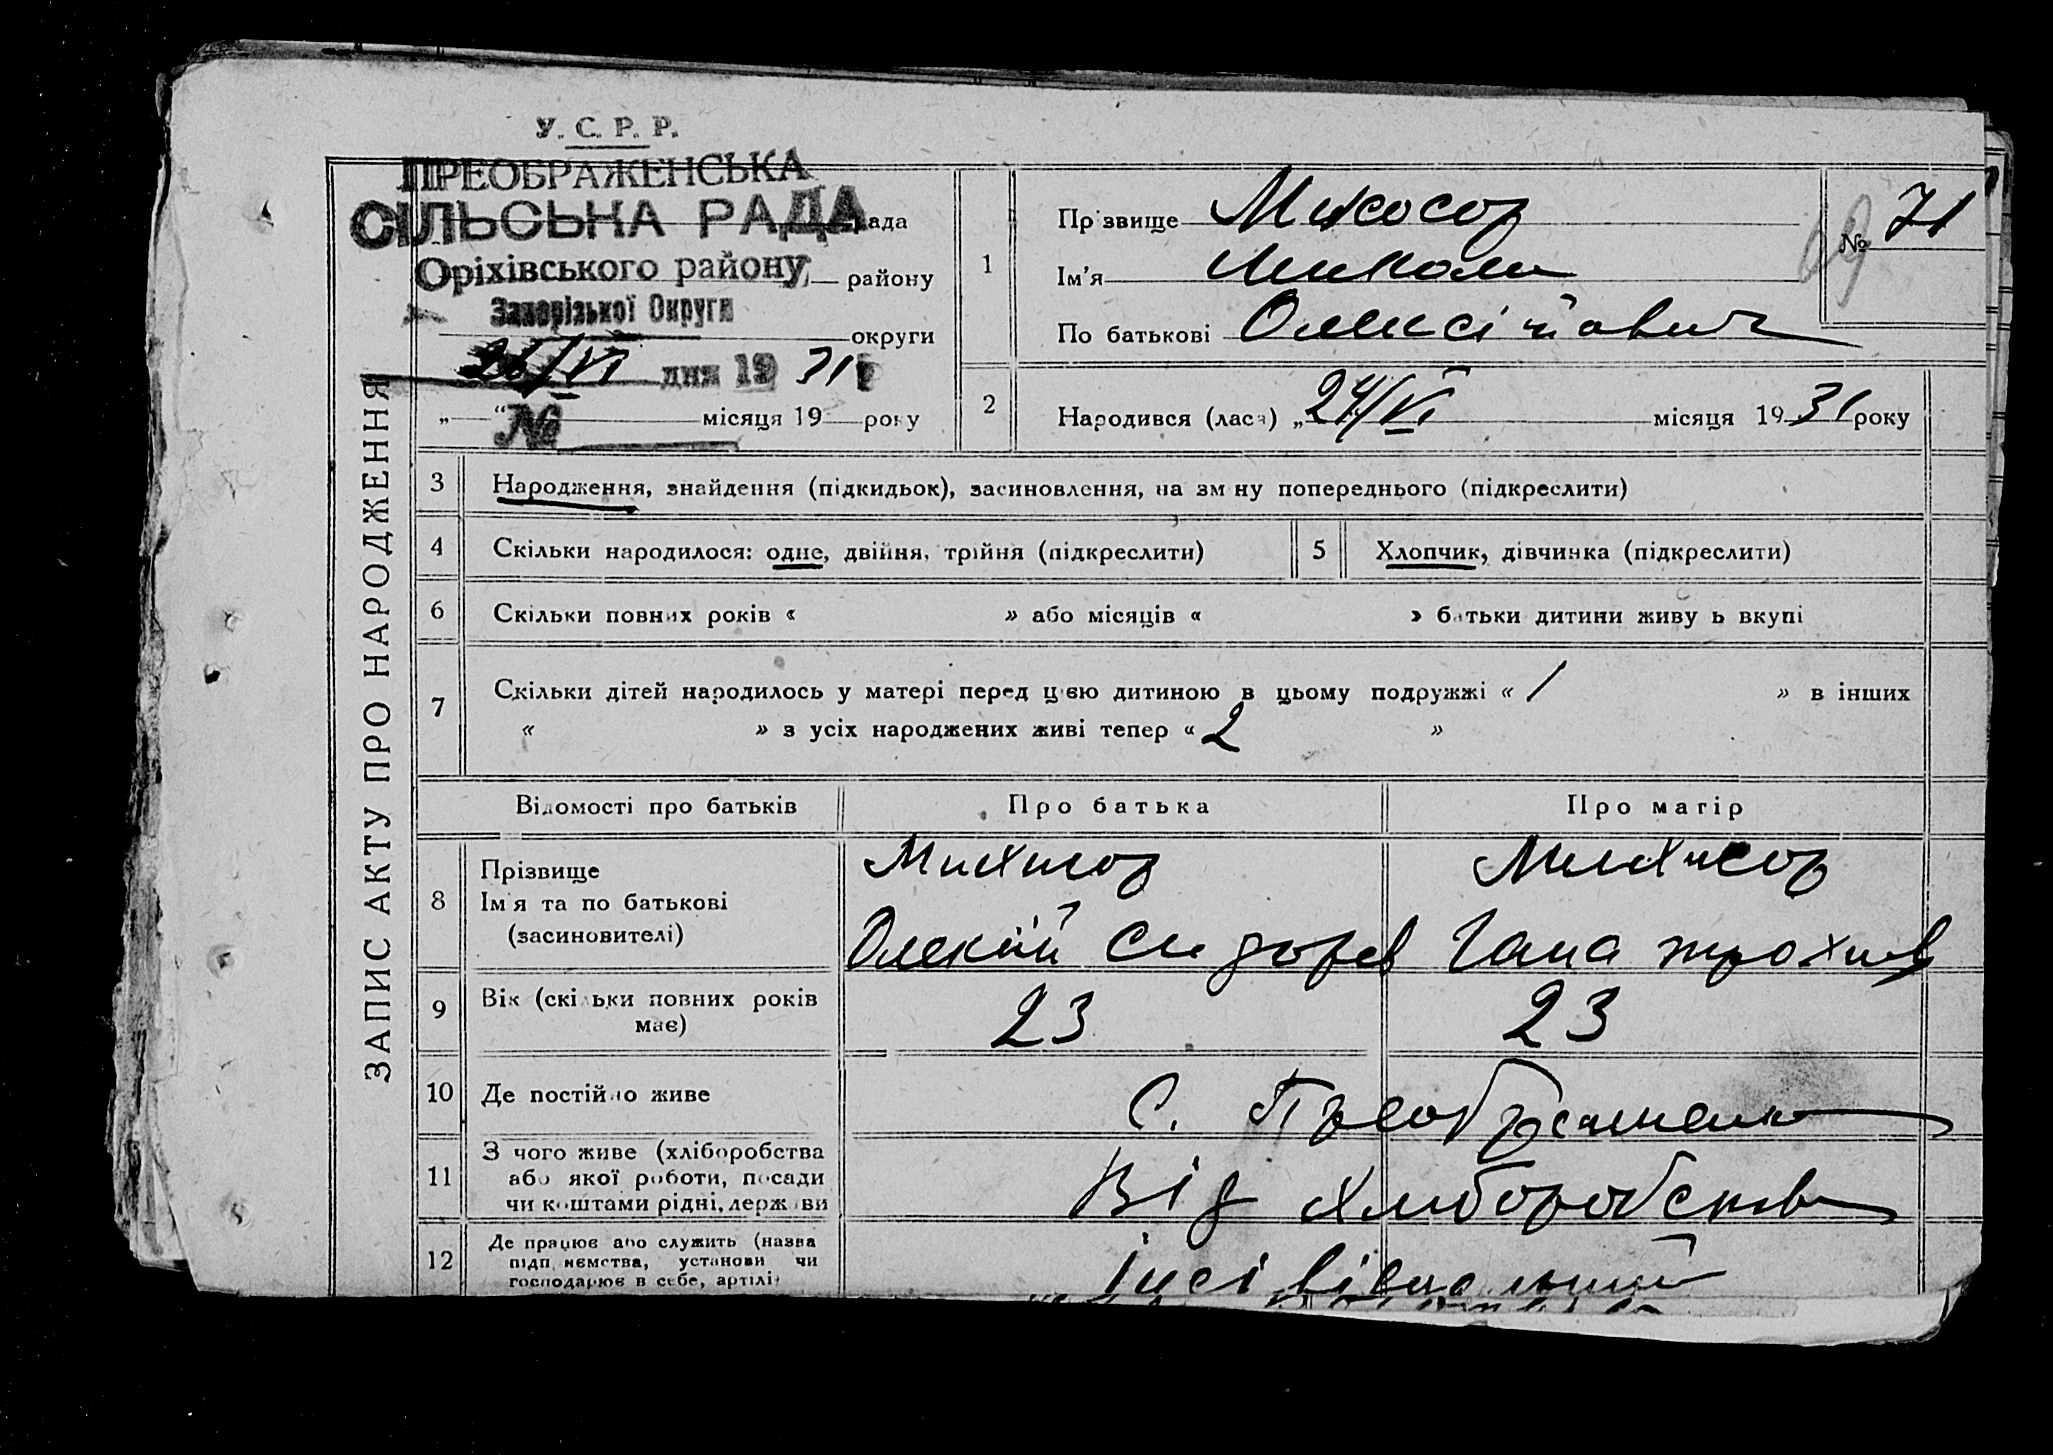 У. С. Р. Р.
ПРЕОБРАЖЕНСЬКА
СІЛЬСЬКА РАДА
Оріхівського району району
Запорізької Округи
округи
26/VI дня 1931 р
№
„ “ місяця 19 року
ЗАПИС АКТУ ПРО НАРОДЖЕННЯ
1 Прізвище
Ім'я Микола
По батькові Олексійович
№ 71
69
2 Народився (лася) „ 24/VI місяця 1931 року
3 Народження, знайдення (підкидьок), засиновлення, на зміну попереднього (підкреслити)
4 Скільки народилося: одне, двійня, трійня (підкреслити)
5 Хлопчик, дівчинка (підкреслити)
6 Скільки повних років « » або місяців « » батьки дитини живуть вкупі
7 Скільки дітей народилось у матері перед цією дитиною в цьому подружжі « 1 » в інших
« » з усіх народжених живі тепер « 2 »
Відомості про батьків Про батька Про матір
8 Прізвище
Ім'я та по батькові
(засиновителі)
Олексій Сидорев Гана Трохив
9 Вік (скільки повних років
має)
23 23
10 Де постійно живе
С. Преображенка
11 З чого живе (хліборобства
або якої роботи, посади
чи коштами рідні, держави
Від хлиборобства
12 Де працює або служить (назва
підприємства, установи чи
господарює в себе, артілі